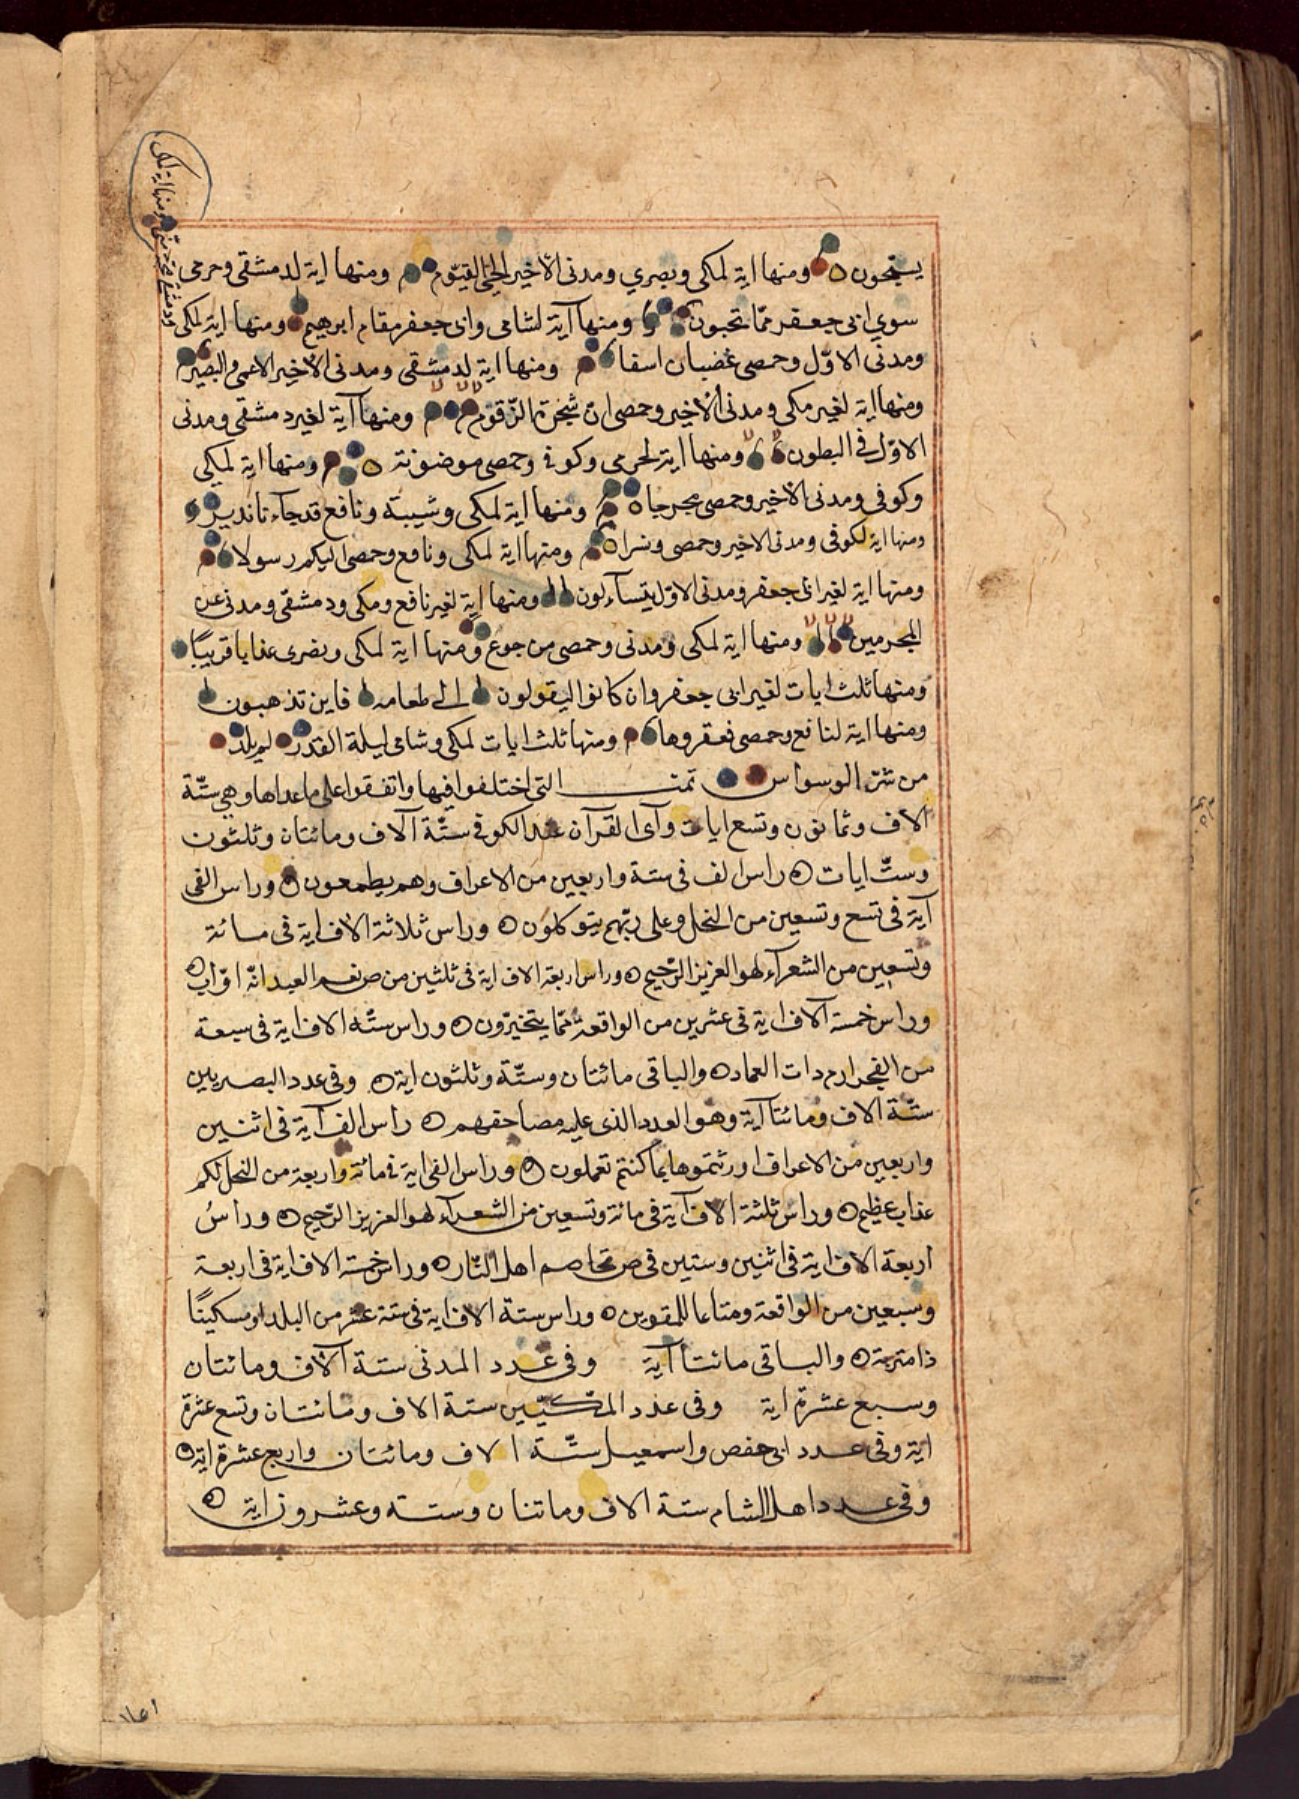 يسبحون ومنها اية لمكى وبصري ومدنى الاخير الحىّ القيّوم ومنها اية لدمشقى وحرمى
سوي ابى جعفر ممّا تحبون ومنها آية لشامى وابى جعفر مقام ابرهيم ومنها اية لمكى
ومدنى الاوّل وحمصى غضبان اسفا ومنها اية لدمشقى ومدنى الاخير الاعمى والبصير
ومنها اية لغير مكى ومدنى الاخير وحمصى ان شجرة الزّقوم ومنها آية لغير دمشقى ومدنى
الاوّل فى البطون ومنها اية لحرمى وكوفى وحمصى موضونة ومنها اية لمكي
وكوفى ومدنى الاخير وحمصى مخرجا ومنها اية لمكى وشيبة ونافع قد جآء نا نذير
ومنها اية لكوفى ومدنى الاخير وحمصى ونسرا ومنها اية لمكى ونافع وحمصى اليكم رسولا
ومنها اية لغير ابى جعفر ومدنى الاوّل يتسآءلون ومنها اية لغير نافع ومكى ودمشقى ومدنى عن
المجرمين ومنها اية لمكى ومدنى وحمصى من جوع ومنها اية لمكى وبصرى عذابا قريبًا
ومنها ثلث ايات لغير ابى جعفر وان كانوا ليقولون الى طعامه فاين تذهبون
ومنها اية لنافع وحمصى فعقروها ومنها ثلث ايات لمكى وشامى ليلة القدر لم يلد
من شرّ الوسواس تمت التى اختلفوا فيها واتفقوا على ما عداها وهى ستّة
الاف وثمانون وتسع ايات وآى القرآن عند الكوفى ستّة آلاف ومائتان وثلثون
وستّ ايات راس الف فى ستة واربعين من الاعراف وهم يطمعون وراس الفى
آية فى تسع وتسعين من النحل وعلى ربّهم يتوكلون وراس ثلاثة الاف اية فى مائة
وتسعين من الشعرآء لهو العزيز الرّحيم وراس اربعة الاف اية فى ثلثين من ص نعم العبد انّه اوّاب
وراس خمسة آلاف اية فى عشرين من الواقعة ممّا يتخيّرون وراس ستّة الاف اية فى سبعة
من الفجر ارم ذات العماد والباقى مائتان وستّة وثلثون اية وفى عدد البصريين
ستّة الاف ومائتا آية وهو العدد الذى عليه مصاحفهم راس الف آية فى اثنين
واربعين من الاعراف اورثتموها بما كنتم تعملون وراس الفى اية فى مائة واربعة من النحل لكم
عذاب عظيم وراس ثلثة الاف آية فى مائة وتسعين من الشعرآء لهو العزيز الرّحيم وراس
اربعة الاف اية فى اثنين وستين فى ص تخاصم اهل النّار وراس خمسة الاف اية فى اربعة
وسبعين من الواقعة ومتاعا للمقوين وراس ستّة الاف اية فى ستة عشر من البلد او مسكينًا
ذا متربة والباقى مائتا آية وفى عدد المدنى ستة آلاف ومائتان
وسبع عشرة اية وفى عدد المكّيّين ستة الاف ومائتان وتسع عشرة
اية وفى عدد ابى حفص واسمعيل ستّة الاف ومائتان واربع عشرة اية
وفى عدد اهل الشام ستة الاف ومائتان وستة وعشرون اية